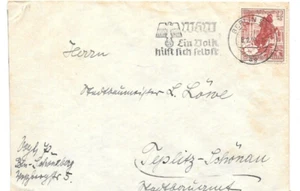 WHW
Ein Volk
hilft sich selbst
BERLIN
Herrn
Stadtbaumeister L. Löwe
Teplitz-Schönau
Stadtbauamt
Bln.-Schöneberg